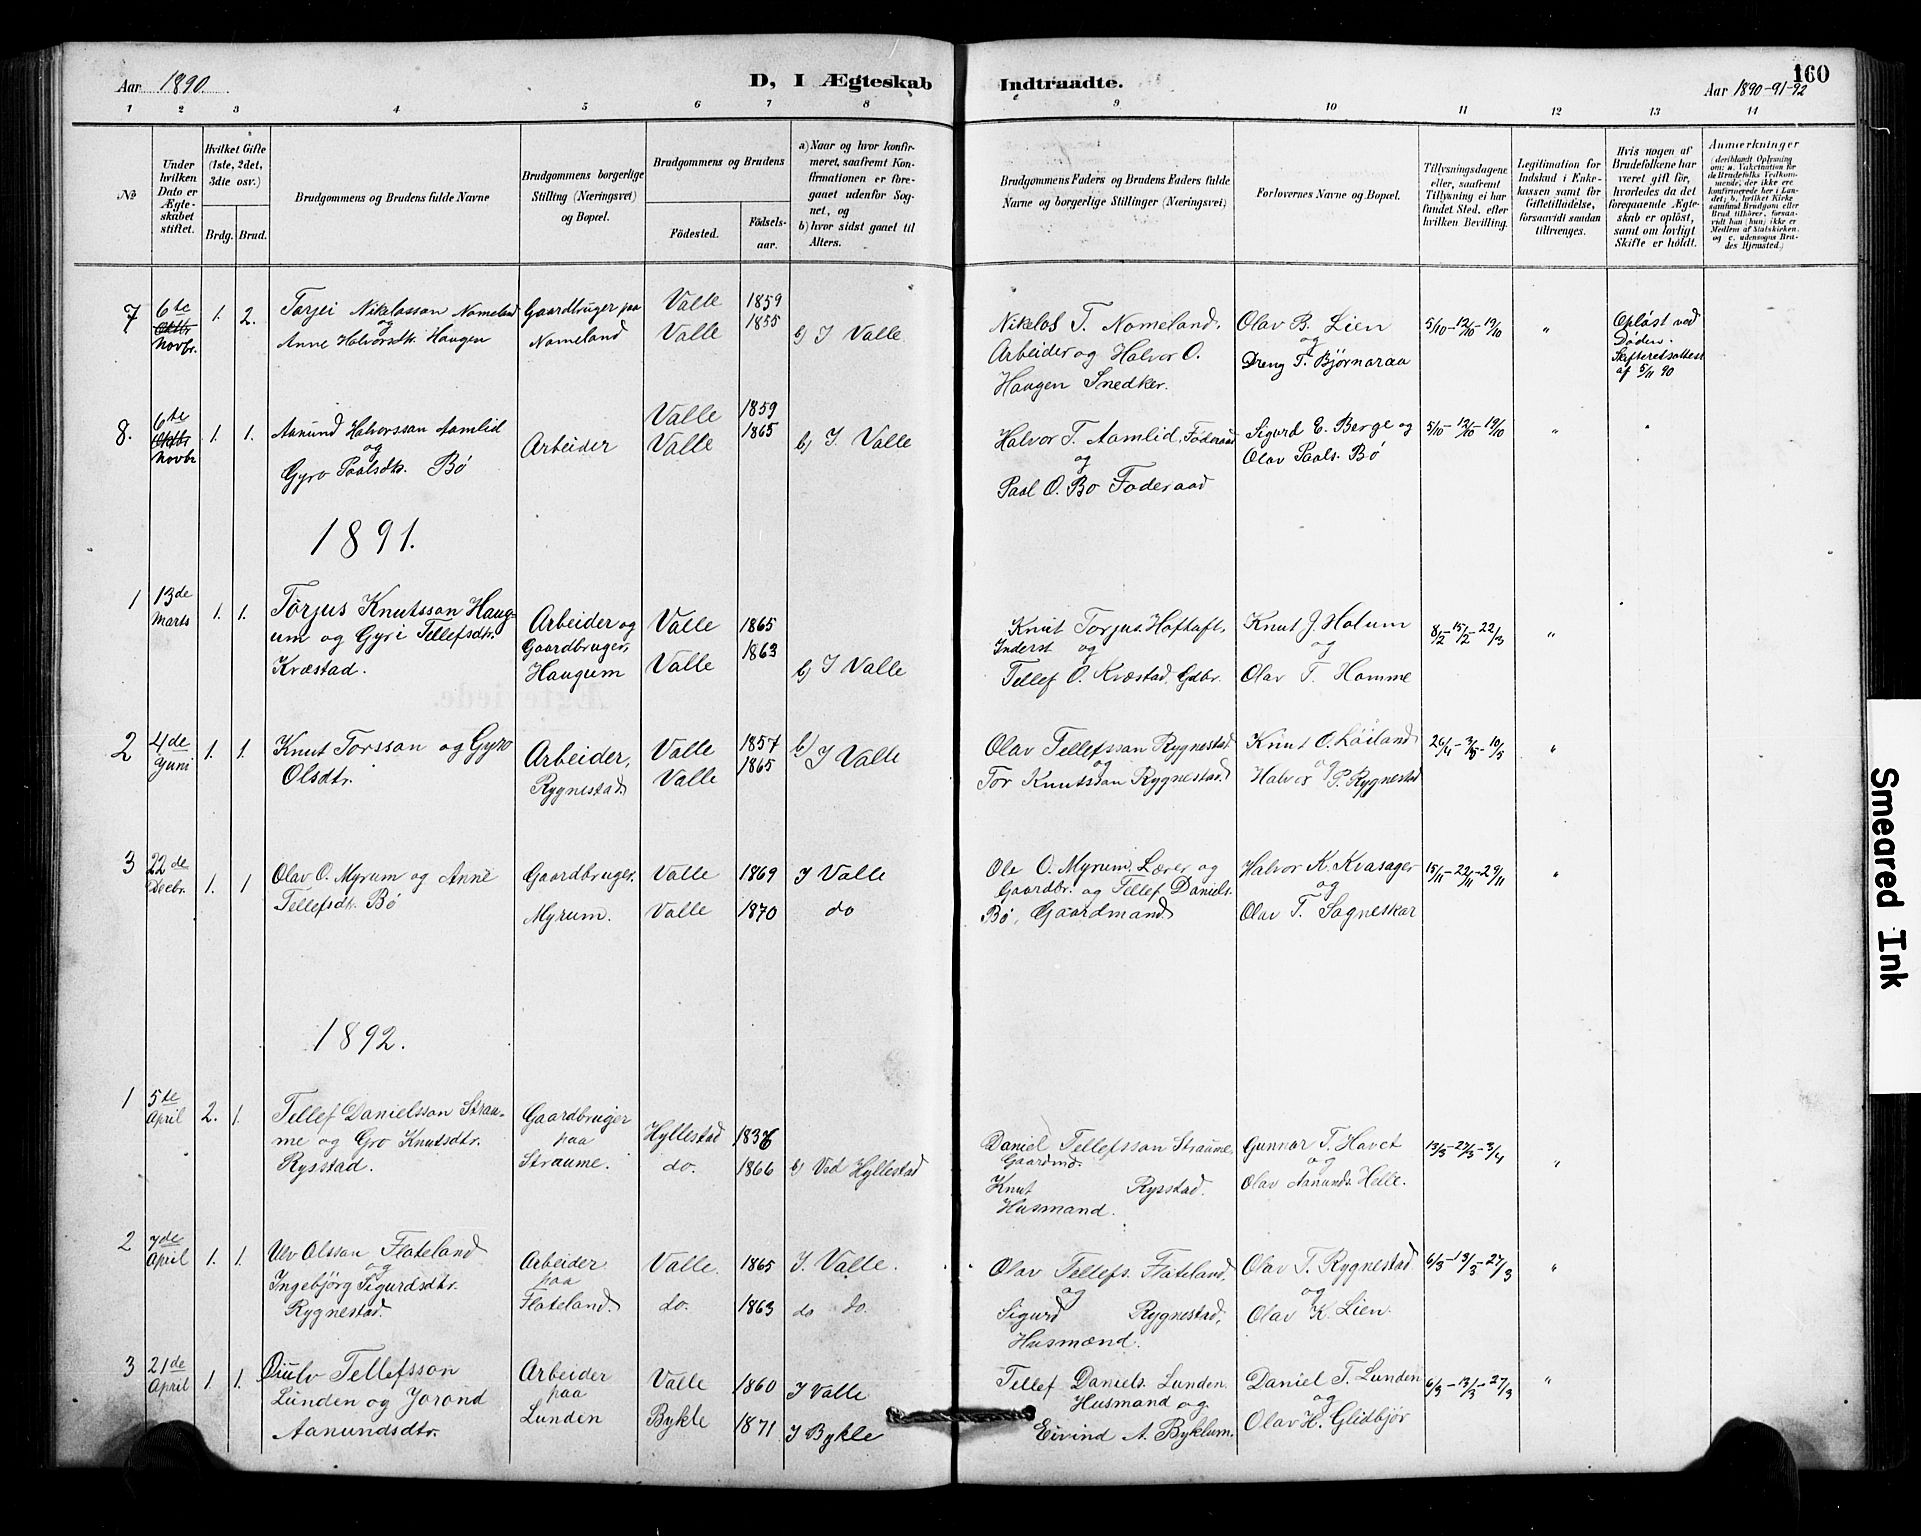 Aar 1890.
D, I Ægteskab
Indtraadte.
Aar 1890-91-92
160
1 2 3 4 5 6 7 8 9 10 11 12 13 14
No
Under hvilken Dato er Ægteskabet stiftet.
Hvilket Gifte (1ste, 2det, 3die osv.)
Brdg. Brud.
Brudgommens og Brudens fulde Navne
Brudgommens borgerlige Stilling (Næringsvei) og Bopæl.
Brudgommens og Brudens
Födested.
Födsels-aar.
a) Naar og hvor konfirmeret, saafremt Konfirmationen er foregaaet udenfor Sognet, og
b) hvor sidst gaaet til Alters.
Brudgommens Faders og Brudens Faders fulde Navne og borgerlige Stillinger (Næringsvei)
Forlovernes Navne og Bopæl.
Tillysningsdagene eller, saafremt Tillysning ei har fundet Sted, efter hvilken Bevilling.
Legitimation for Indskud i Enkekassen samt for Giftetilladelse, forsaavidt saadan tiltrænges.
Hvis nogen af Brudefolkene har været gift för, hvorledes da det foregaaende Ægteskab er oplöst, samt om lovligt Skifte er holdt.
Anmærkninger
7 6te Oktbr Novbr. 1. 2.
Torjei Nikolasson Nomeland
og
Anne Halvorsdtr. Haugen
Gaardbruger paa
Nomeland
Valle 1859
Valle 1855
b) I Valle
Nikolos T. Nomeland.
Arbeider og Halvor O.
Haugen Snedker.
Olav B. Lien
og
Dreng T. Bjørnaraa
5/10-12/10-19/10
"
Opløst ved
Døden.
Skifteretsattest
af 5/11 90
8. 6te Oktbr Novbr 1. 1.
Aanund Halvorsson Aamlid
og
Gyro Paalsdtr. Bö
Arbeider
Valle 1859
Valle 1865
b) I. Valle
Halvor T. Aamlid, Föderaad
og
Paal O. Bö Föderaad
Sigurd E. Berge og
Olav Paals. Bö
5/10-12/10-19/10
"
"
1891.
1 13de Marts 1. 1.
Torjus Knutsson Haug-
um og Gyri Tellefsdtr.
Kvæstad.
Arbeider og
Gaardbruger,
Haugum
Valle 1865
Valle 1863
b) I Valle
Knut Torjus. Hoftuft,
Inderst og
Tellef O. Kvæstad, Gdbr.
Knut J. Holum
og
Olav T. Homme
8/2-15/2-22/3
"
2 4de Juni 1. 1.
Knut Torsson og Gyro
Olsdtr.
Arbeider,
Rygnestad.
Valle 1857
Valle 1865
b) I Valle
Olav Tellefsson Rygnestad
og
Tor Knutsson Rygnestad.
Knut O. Löiland
og
Halvor P. Rygnestad
26/4-3/5-10/5
"
3 22de Decbr. 1. 1
Olav O. Myrum og Anne
Tellefsdtr. Bö
Gaardbruger.
Myrum.
Valle 1869
Valle 1870
I Valle
do
Ole O. Myrum, Lærer og
Gaardbr. og Tellef Daniels.
Bö, Gaardmand
Halvor K. Kvasager
og
Olav T. Sagneskar
15/11-22/11-29/11
"
1892.
1 5te April 2. 1.
Tellef Danielsson Strau-
me og Gro Knutsdtr.
Rysstad.
Gaardbruger
paa
Straume.
Hyllestad 1836
do. 1866
b) Ved Hyllestad
Daniel Tellefsson Straume,
Gaardmd.
Knut Rysstad.
Husmand.
Gunnar T. Hovet
og
Olav Aanunds. Helle.
13/3-27/3-3/4
"
2 7de April 1. 1.
Ulv Olsson Flateland
og
Ingebjörg Sigurdsdtr.
Rygnestad.
Arbeider
paa
Flateland.
Valle. 1865
do. 1863
I. Valle.
do do.
Olav Tellefs. Flateland.
og
Sigurd Rygnestad,
Husmænd.
Olav T. Rygnestad
og
Olav K. Lien.
6/3-13/3-27/3
"
3 21de April 1. 1.
Tellefsson
Lunden og Jorand
Aanundsdtr.
Arbeider
paa
Lunden
Valle 1860
Bykle 1871
I Valle
I Bykle
Tellef Daniels. Lunden.
Husmand og
Eivind A. Byklum.
Daniel T. Lunden
og
Olav H. Glidbjör
6/3-13/3-27/3
"
Smeared Ink